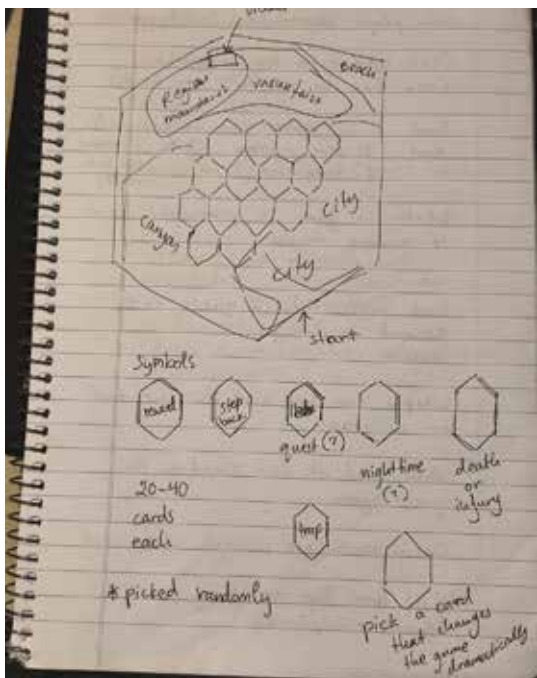 Beach
Region
mountains
mountains
City
Canyon
City
start
Symbols
reward
step
back
quest (?)
nighttime
(?)
death
or
injury
20-40
cards
each
trap
* picked randomly
pick a card
that changes
the game
dramatically